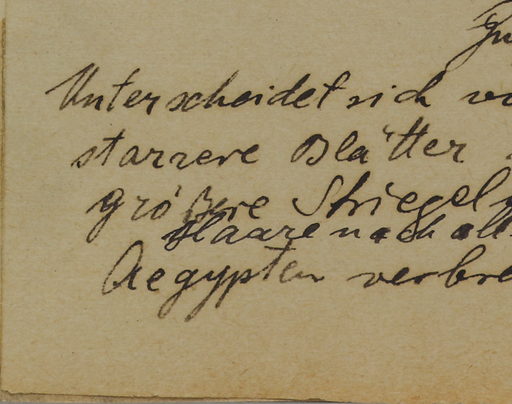 Unterscheidet sich vo
starrere Blätter
größere Striegel
Haare nach all
Aegypten verbre